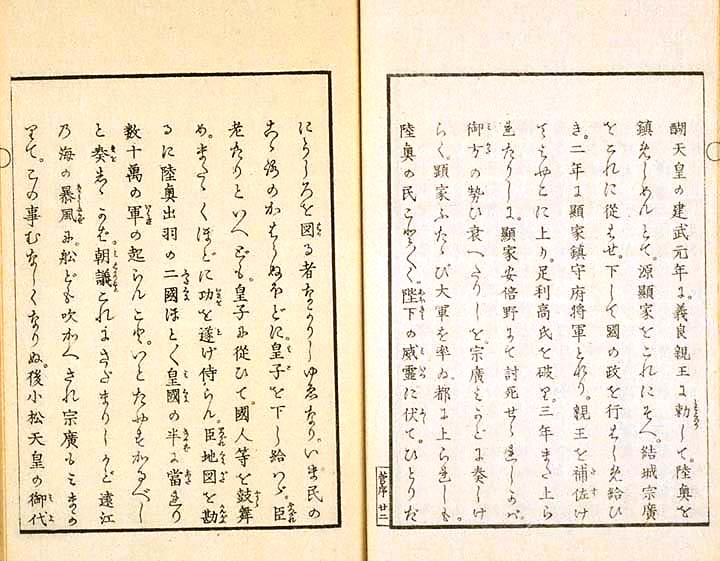 醐天皇の建武元年に。義良親王に勅して。陸奥を
鎮めしめんとて。源顕家をこれにそへ。結城宗廣
をこれに從はせ。下して國の政を行はしめ給ひ
き。二年に顕家鎮守府将軍となり。親王を補佐け
てみやこに上り。足利高氏を破り。三年また上ら
れたりしに。顕家安倍野にて討死せられしかば。
御方の勢ひ衰へたりしを。宗廣みかどに奏しけ
らく。顕家ふたゝび大軍を率ゐ。都に上られしも。
陸奥の民こと〴〵く。陛下の威霊に伏て。ひとりだ
菅序 廿二
にうしろを図る者なかりしゆゑなり。いま民の
こゝろのかはらぬほどに。皇子を下し給はゞ。臣
老たりといへども。皇子に從ひて。國人等を鼓舞
め。またゝくほどに功を遂げ侍らん。臣地図を勘
るに陸奥出羽の二國ほと〳〵皇國の半に當れり
數十萬の軍の起らんこと。いとたやすかるべし
と奏しゝかば。朝議これにさだまりしかど遠江
乃海の暴風に。船ども吹かへされ宗廣もみまか
りて。この事むなしくなりぬ。後小松天皇の御代